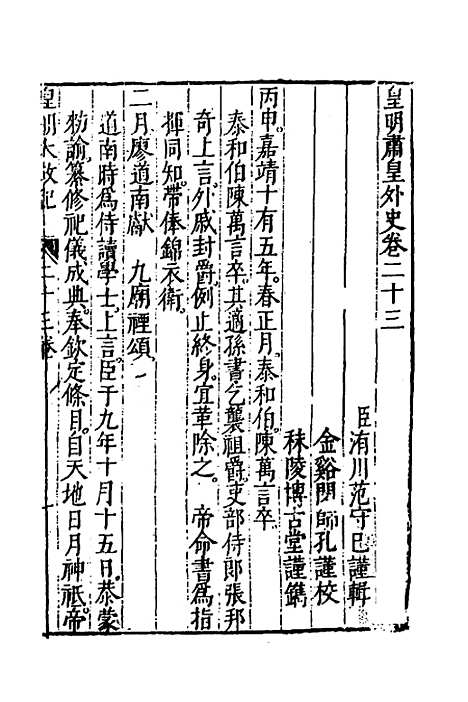 皇明肅皇外史卷二十三
臣洧川范守己謹輯
金谿閔師孔謹校
秣陵博古堂謹鐫
丙申嘉靖十有五年。春正月。泰和伯陳萬言卒
泰和伯陳萬言卒。其適孫書乞襲祖爵。吏部侍郎張邦
奇上言。外戚封爵。例止終身。宜革除之。 帝命書爲指
揮同知。帶俸錦衣衛。
二月廖道南獻 九廟禋頌
道南時爲侍讀學士。上言。臣于九年十月十五日。恭蒙
勑諭纂修祀儀成典。奉欽定條目。自天地日月神祗。帝
皇明大政記 二十三卷